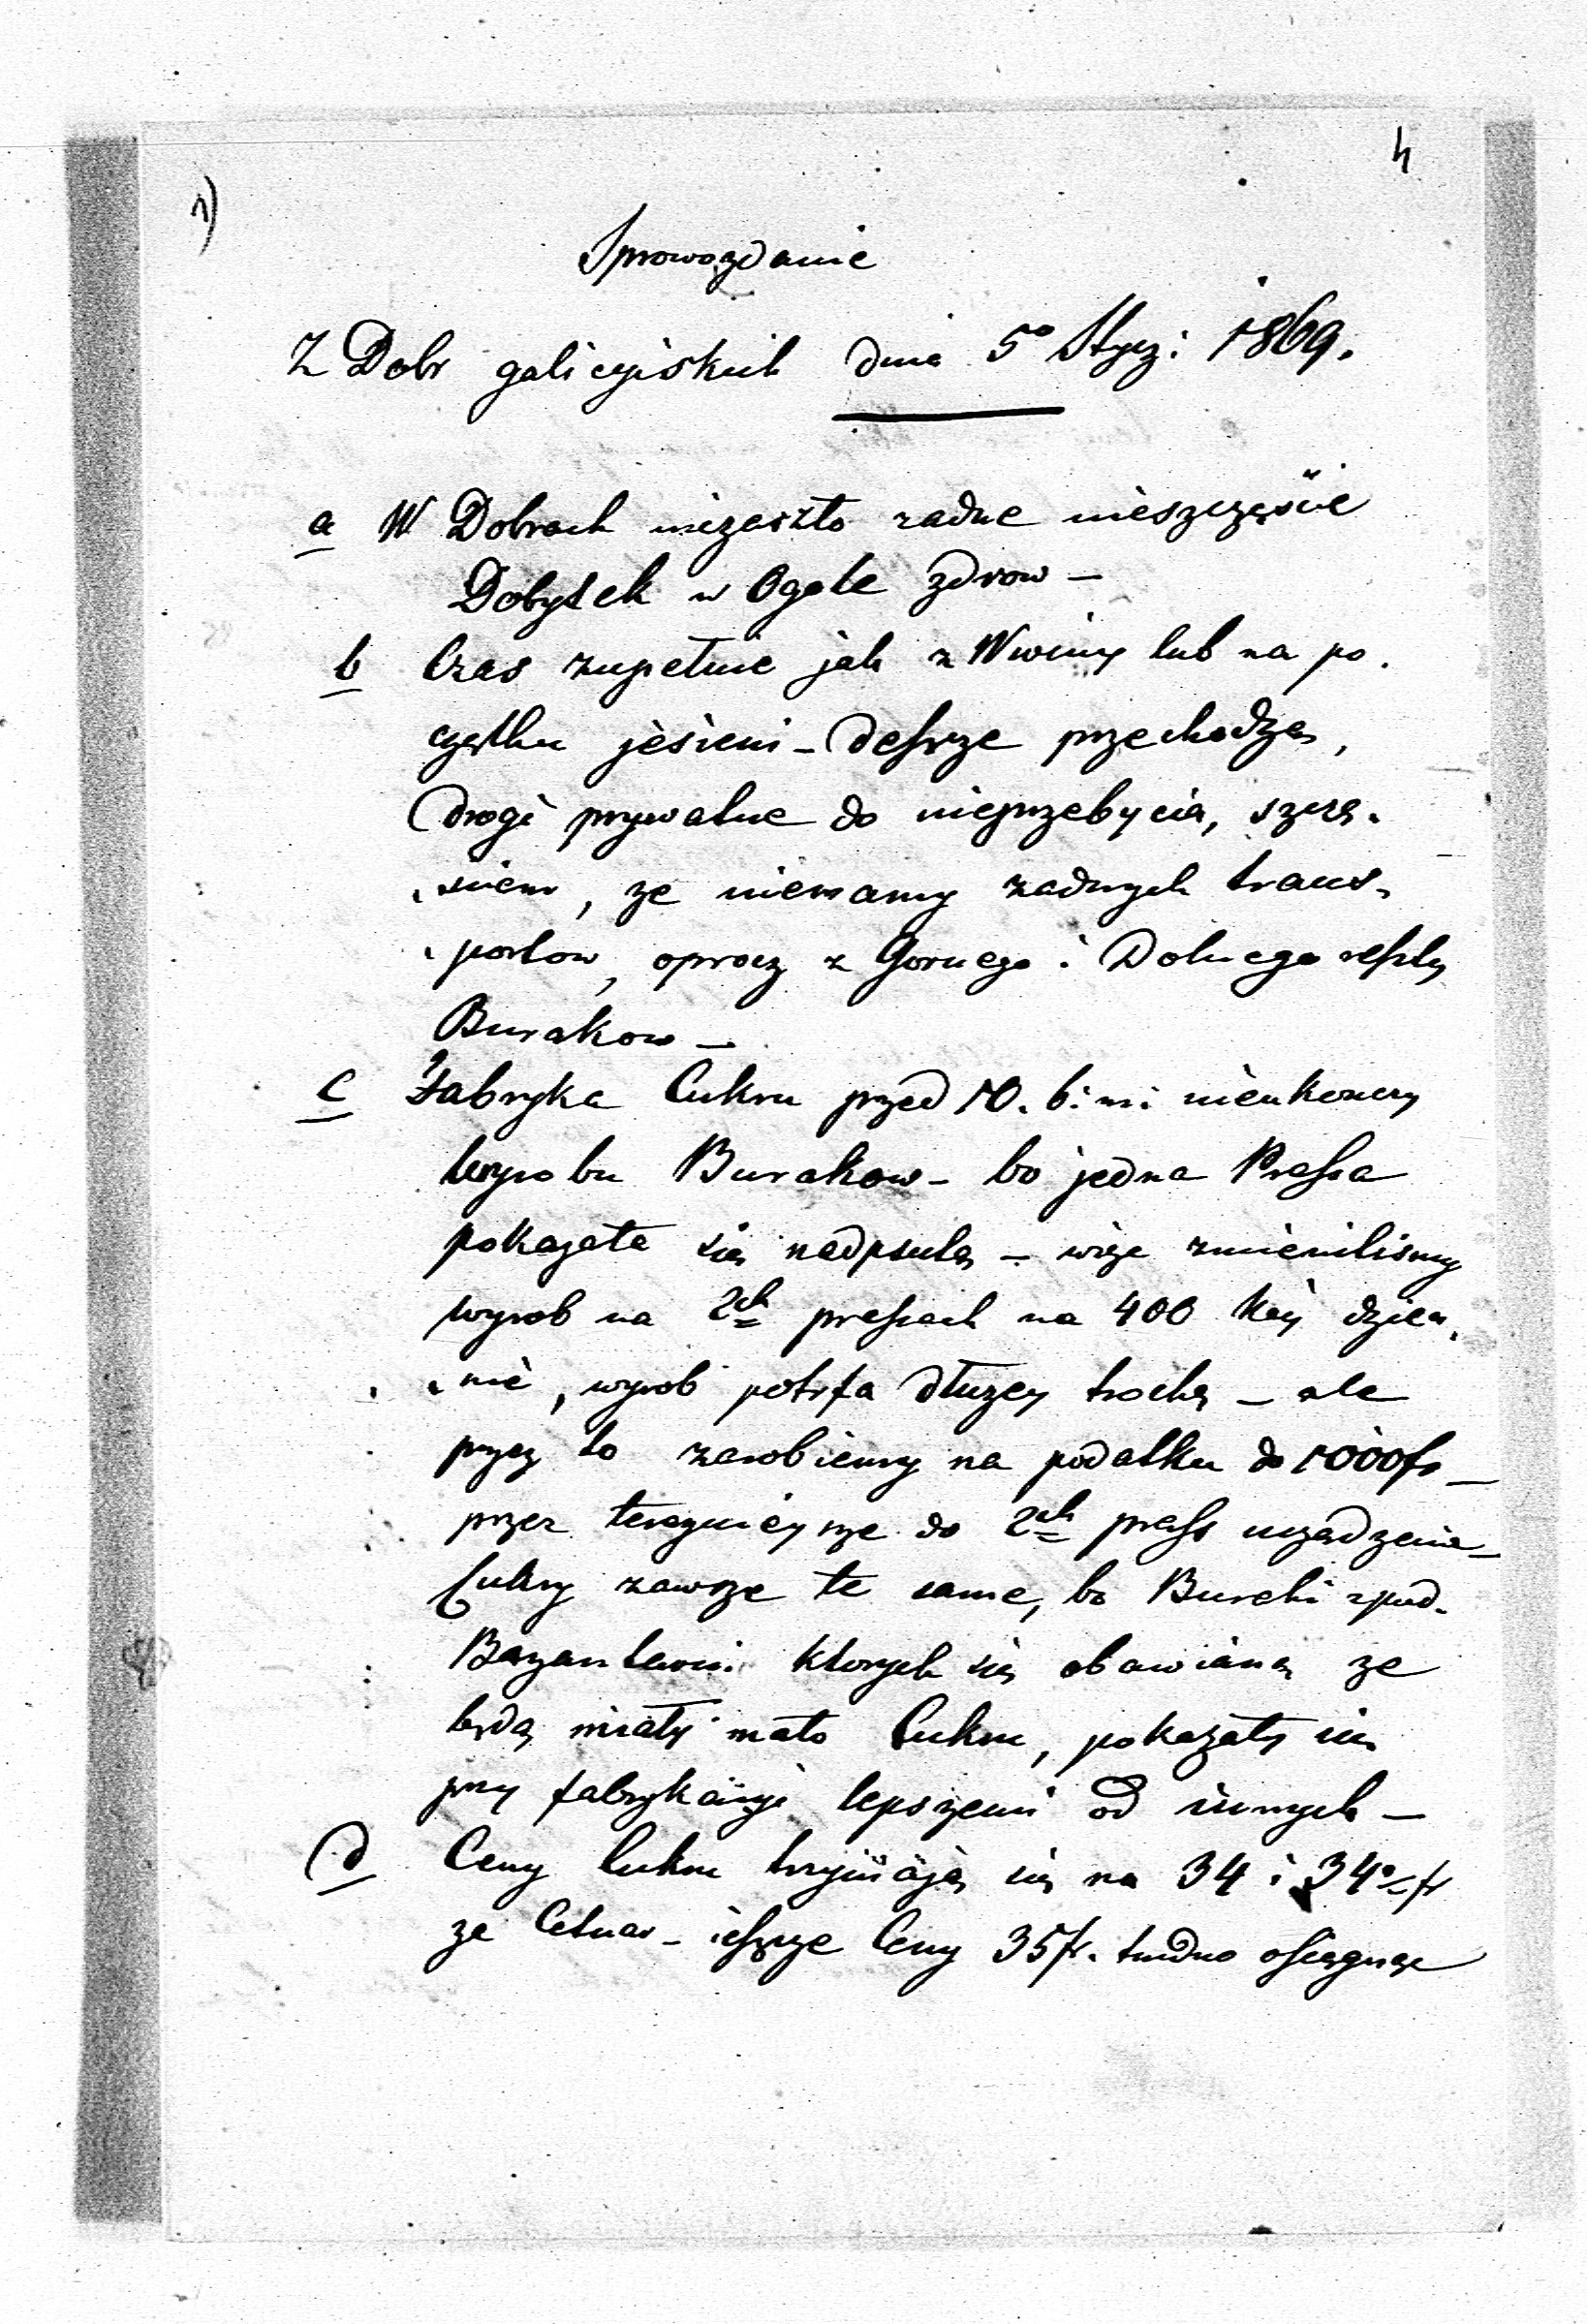 4
1)
Sprowozdanie
Z Dobr galicyiskich dnia 5º Stycz: 1869.
a W Dobrach niezaszło zadne nieszczęście
Dobytek w Ogole zdrow –
b Czas zupełnie jak z Wwiny lub na po-
czątku jesieni – deszcze przechodzą,
drogi prywatne do nieprzebycia, szczę-
-sciem, ze niemamy zadnych trans-
-portow, oprocz z Gornego i Dolnego reszty
Burakow –
c Fabryka Cukru przed 10. b: m: nieukonczy
wyrobu Burakow – bo jedna Prassa
pokazała się nadpsutą – więc zmienilismy
wyrob na 2ch prassach na 400 dzien-
-nie, wyrob potrfa dłuzey trochę – ale
przez to zarobiemy na podatku do 1000fr –
przez teraznieysze do 2ch prass urządzenie –
Cukry zawsze te same, bo Buraki zpod
Bazantarni ktorych się obawiano ze
będą miały mało Cukru, pokazały się
przy fabrykacyi lepszemi od innych –
d Ceny Cukru trzymają się na 34 i fr
ze Cetnar – ieszcze Ceny 35fr. trudno osiągnąc